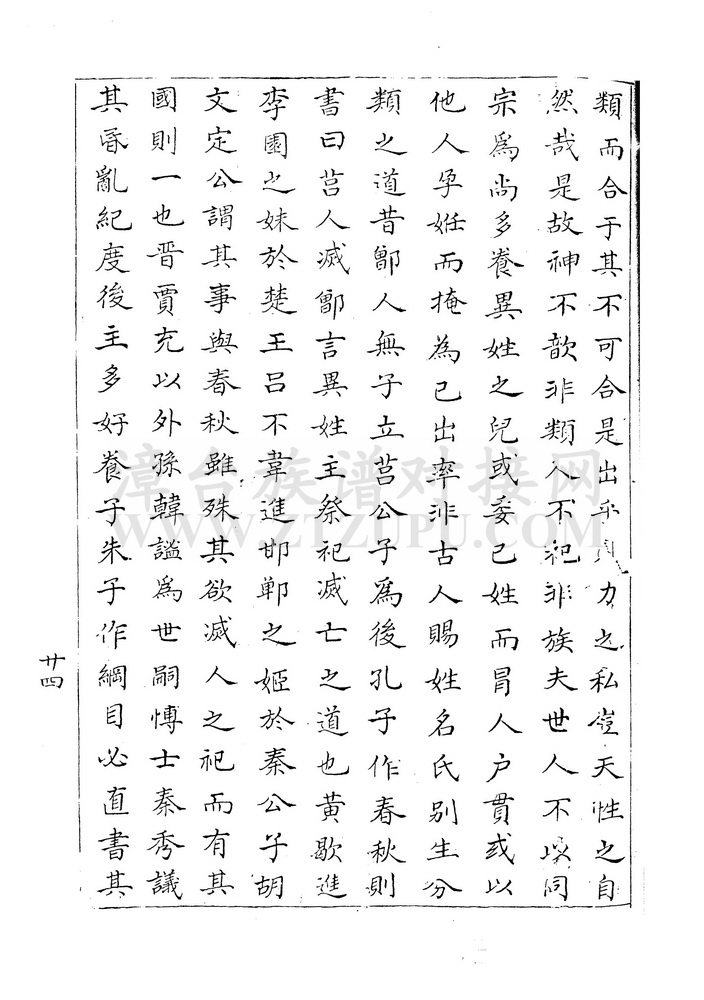 類而合于其不可合是出乎力之私豈天性之自
然哉是故神不歆非類人不祀非族夫世人不與同
宗為尚多養異姓之兒或委己姓而冒人户貫或以
他人孕姙而掩為已出率非古人賜姓名氏别生分
類之道昔鄫人無子立莒公子為後孔子作春秋則
書曰莒人滅鄫言異姓主祭祀滅亡之道也黄歇進
李園之妹於楚王吕不韋進邯鄲之姬於秦公子胡
文定公謂其事與春秋雖殊其欲滅人之祀而有其
國則一也晋賈充以外孫韓謐為世嗣愽士秦秀議
其昏亂紀度後主多好養子朱子作綱目必直書其
廿四
漳台族谱对接网
WWW.ZTZUPU.COM